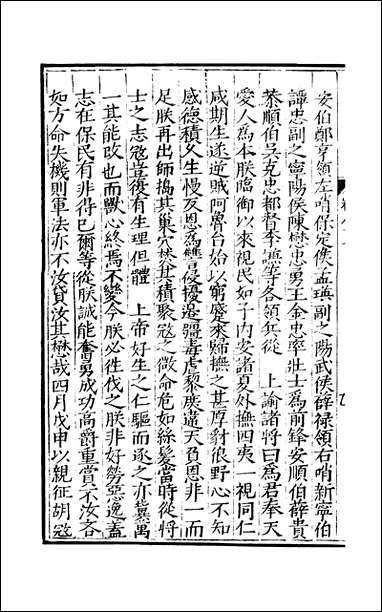 安伯鄭亨領左哨保定侯孟瑛副之陽武侯薛祿領右哨新寧伯
譚忠副之寧陽侯陳懋忠勇王金忠率壯士為前鋒安順伯薛貴
恭順伯吳克忠都督李謙等各領兵從　上諭諸將曰為君奉天
愛人為本朕臨御以來視民如子內安諸夏外撫四夷一視同仁
咸期生遂逆賊阿魯台始以窮蹙來歸撫之甚厚豺狼野心不知
感德積久生慢反恩為讐侵擾邊疆毒虐黎庶違天負恩非一而
足朕再出師搗其巢穴焚其積聚寇之微命危如絲髮當時從將
士之志寇豈復有生理但體　上帝好生之仁驅而逐之亦冀萬
一其能改也而獸心終焉不變今朕必往伐之朕非好勞惡逸蓋
志在保民有非得已爾等從朕誠能奮勇成功高爵重賞不汝吝
如方命失機則軍法亦不汝貸汝其懋哉四月戊申以親征胡寇